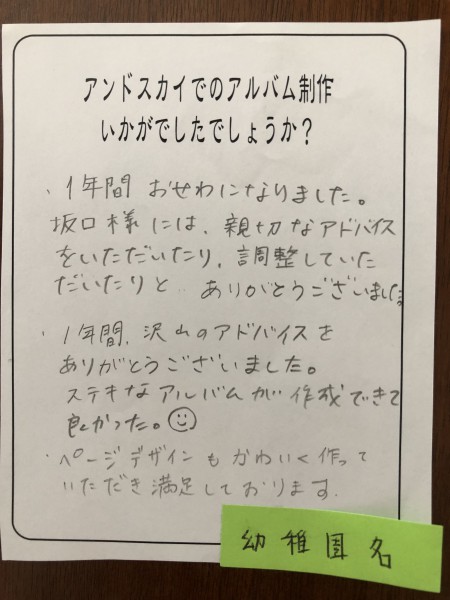 アンドスカイでのアルバム制作
いかがでしたでしょうか？
・1年間 おせわになりました。
坂口様には、親切なアドバイス
をいただいたり、調整していた
だいたりと… ありがとうございました。
・1年間、沢山のアドバイスを
ありがとうございました。
ステキなアルバムが作成できて
良かった。☺
・ページデザインもかわいく作って
いただき満足しております。
幼稚園名